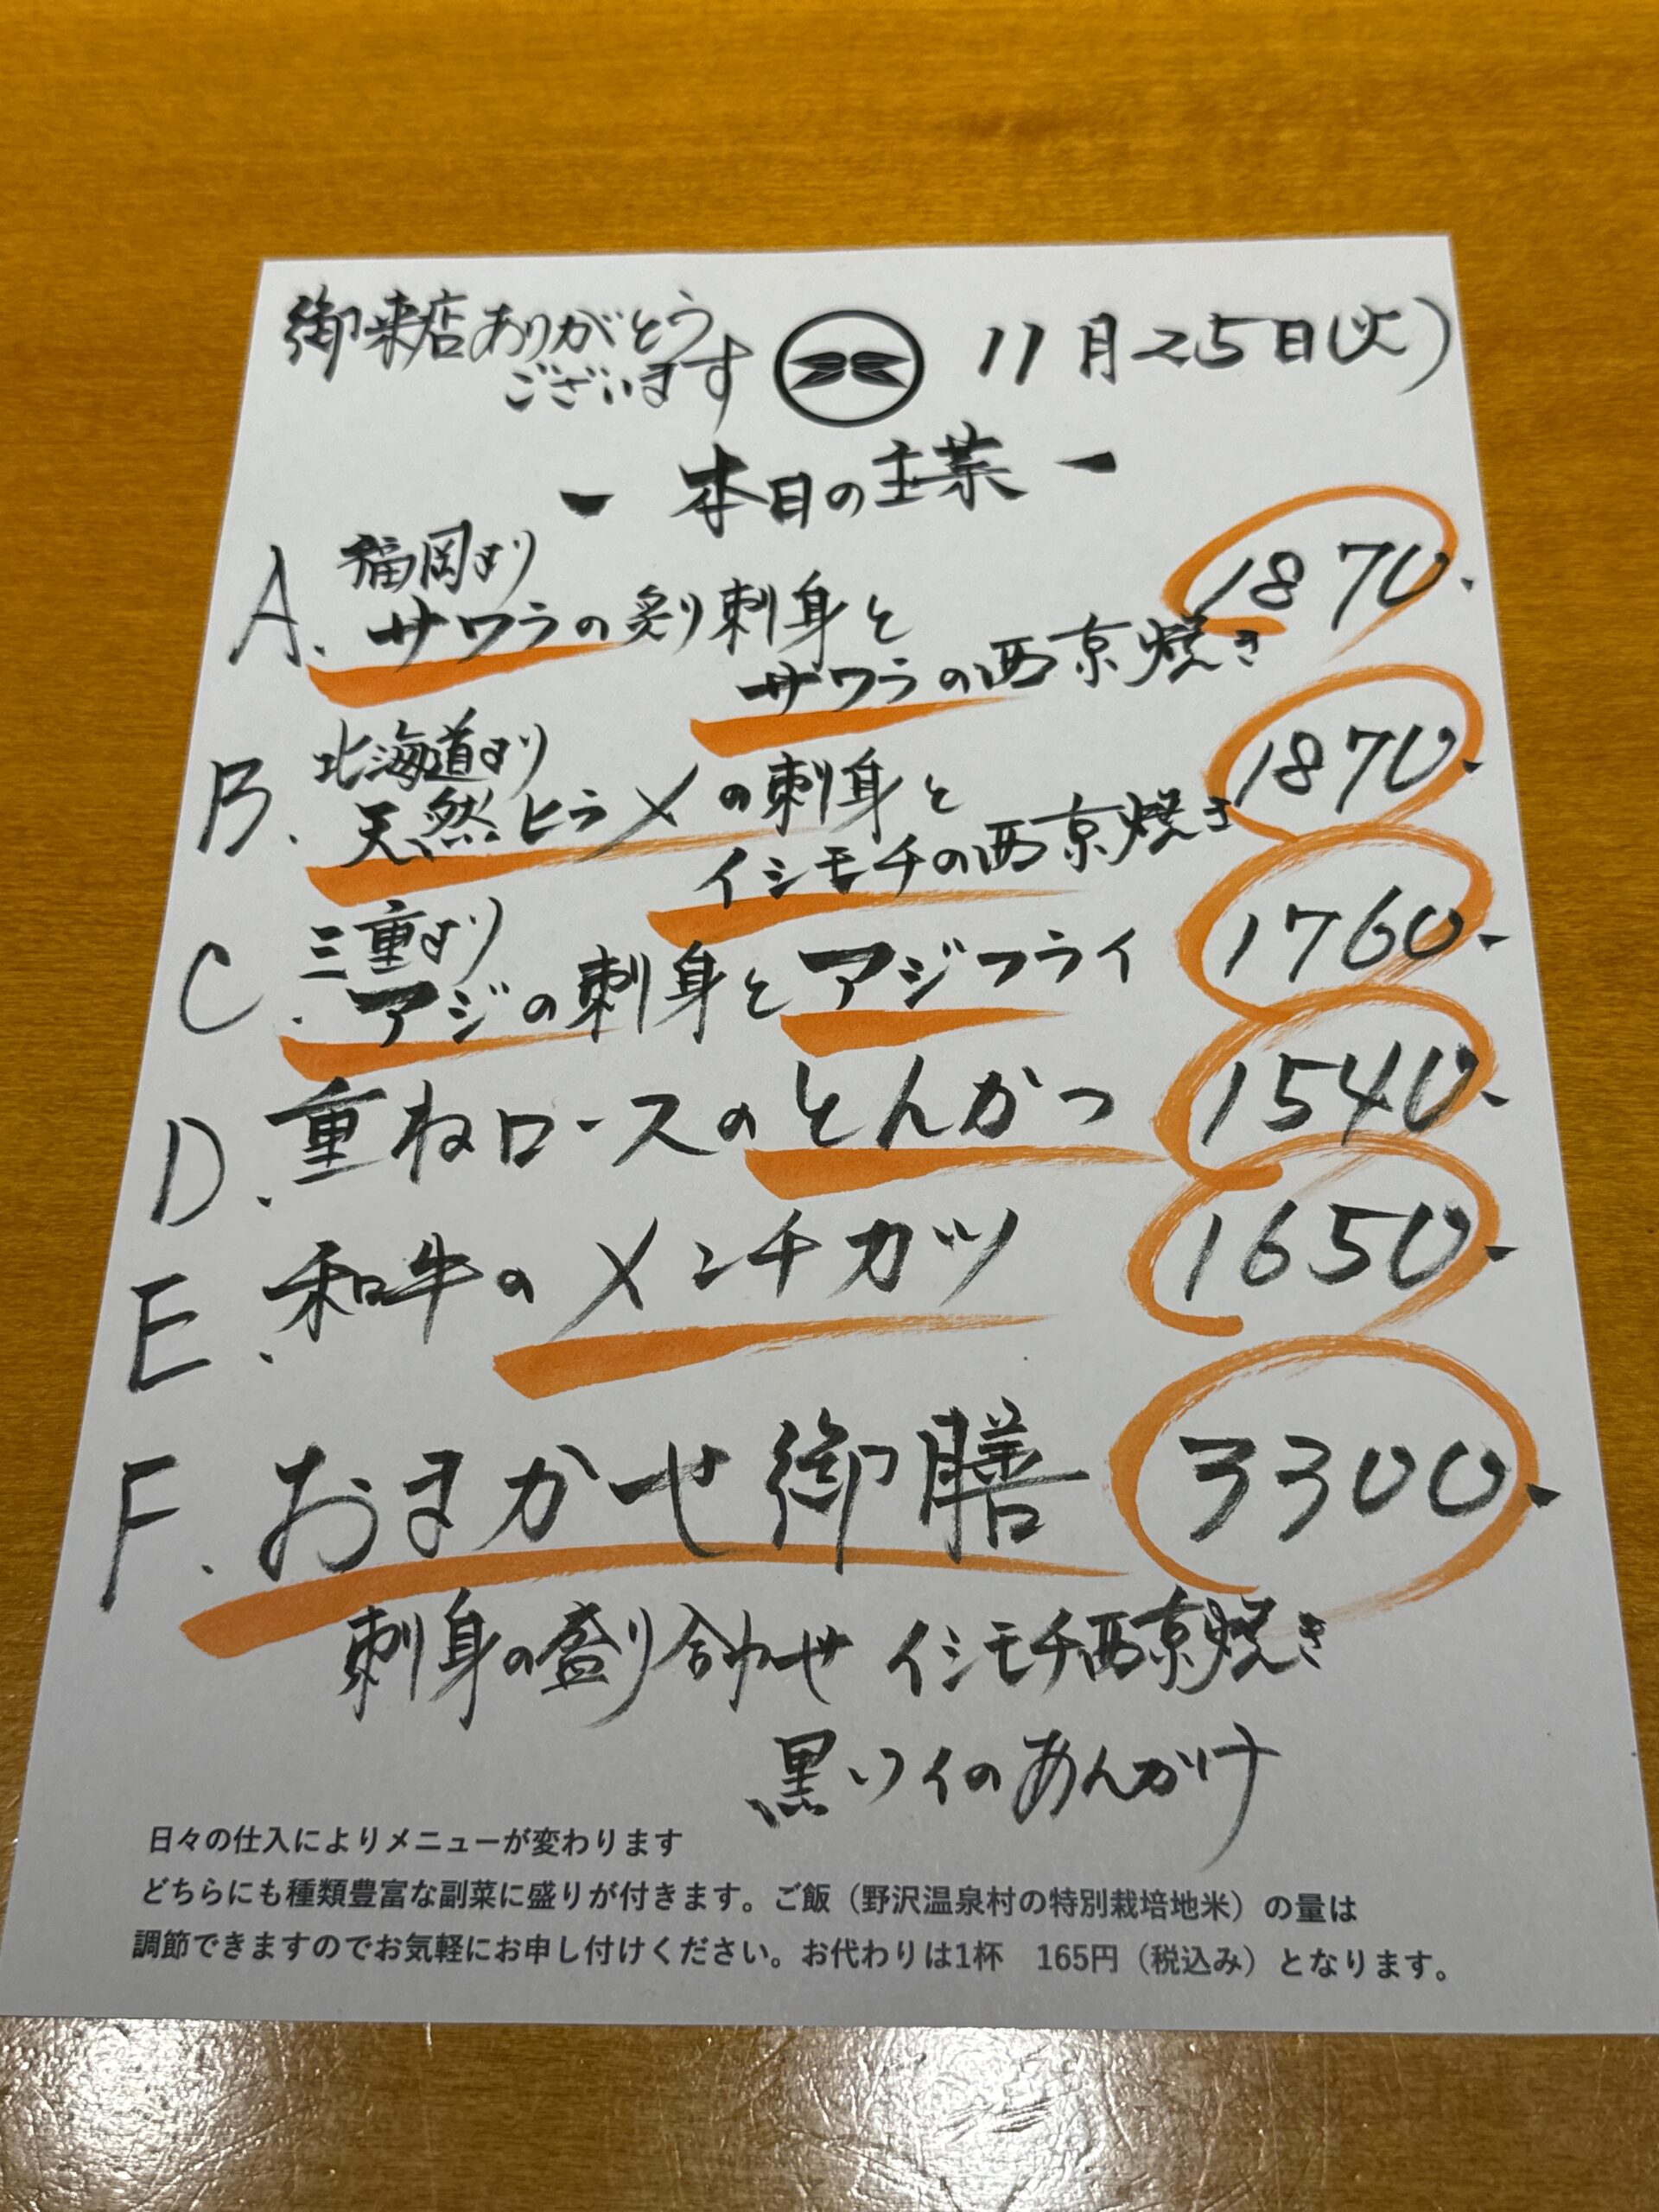 御来店ありがとう
ございます
11月25日(火)
- 本日の主菜 -
A. 福岡より
サワラの炙り刺身と
サワラの西京焼き
1870.
B. 北海道より
天然ヒラメの刺身と
イシモチの西京焼き
1870.
C. 三重より
アジの刺身とアジフライ
1760.
D. 重ねロースのとんかつ 1540.
E. 和牛のメンチカツ 1650.
F. おまかせ御膳 3300.
刺身の盛り合わせ イシモチ西京焼き
黒ソイのあんかけ
日々の仕入によりメニューが変わります
どちらにも種類豊富な副菜に盛りが付きます。ご飯（野沢温泉村の特別栽培地米）の量は
調節できますのでお気軽にお申し付けください。お代わりは1杯　165円（税込み）となります。